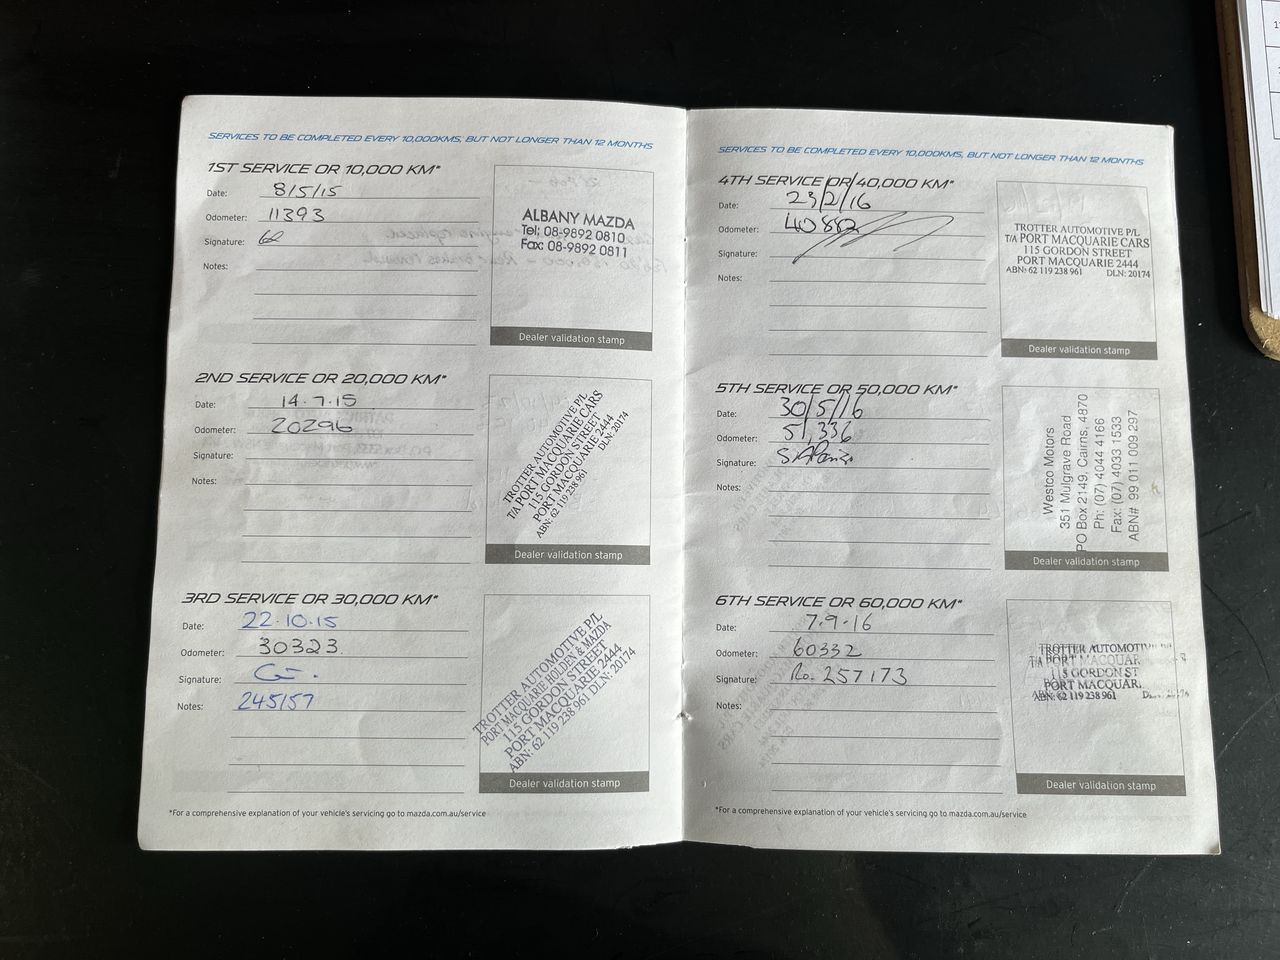 SERVICES TO BE COMPLETED EVERY 10,000KMS, BUT NOT LONGER THAN 12 MONTHS
1ST SERVICE OR 10,000 KM*
Date: 8/5/15
Odometer: 11393
Signature:
Notes:
ALBANY MAZDA
Tel: 08-9892 0810
Fax: 08-9892 0811
Dealer validation stamp
2ND SERVICE OR 20,000 KM*
Date: 14.7.15
Odometer: 20296
Signature:
Notes:
TROTTER AUTOMOTIVE P/L
T/A PORT MACQUARIE CARS
115 GORDON STREET
PORT MACQUARIE 2444
ABN: 62 119 238 961 DLN: 20174
Dealer validation stamp
3RD SERVICE OR 30,000 KM*
Date: 22.10.15
Odometer: 30323.
Signature:
Notes: 245157
TROTTER AUTOMOTIVE P/L
PORT MACQUARIE HOLDEN & MAZDA
115 GORDON STREET
PORT MACQUARIE 2444
ABN: 62 119 238 961 DLN: 20174
Dealer validation stamp
*For a comprehensive explanation of your vehicle's servicing go to mazda.com.au/service
SERVICES TO BE COMPLETED EVERY 10,000KMS, BUT NOT LONGER THAN 12 MONTHS
4TH SERVICE OR 40,000 KM*
Date: 23/2/16
Odometer: 40882
Signature:
Notes:
TROTTER AUTOMOTIVE P/L
T/A PORT MACQUARIE CARS
115 GORDON STREET
PORT MACQUARIE 2444
ABN: 62 119 238 961 DLN: 20174
Dealer validation stamp
5TH SERVICE OR 50,000 KM*
Date: 30/5/16
Odometer: 51,336
Signature:
Notes:
Westco Motors
351 Mulgrave Road
PO Box 2149, Cairns, 4870
Ph: (07) 4044 4166
Fax: (07) 4033 1533
ABN# 99 011 009 297
Dealer validation stamp
6TH SERVICE OR 60,000 KM*
Date: 7.9.16
Odometer: 60332
Signature: Ro. 257173
Notes:
TROTTER AUTOMOTIV
T/A PORT MACQUAR
115 GORDON ST
PORT MACQUAR
ABN: 62 119 238 961
Dealer validation stamp
*For a comprehensive explanation of your vehicle's servicing go to mazda.com.au/service